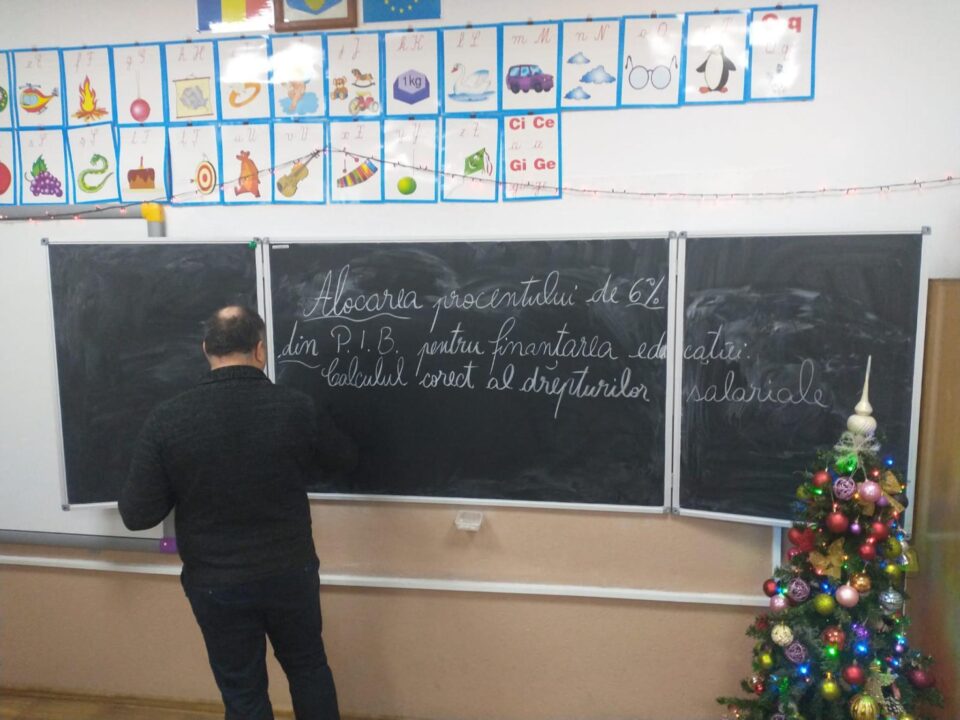 h H
k K
l L
m M
n N
1kg
Ci Ce
Gi Ge
Alocarea procentului de 6%
din P.I.B. pentru finanțarea educației.
Calculul corect al drepturilor salariale